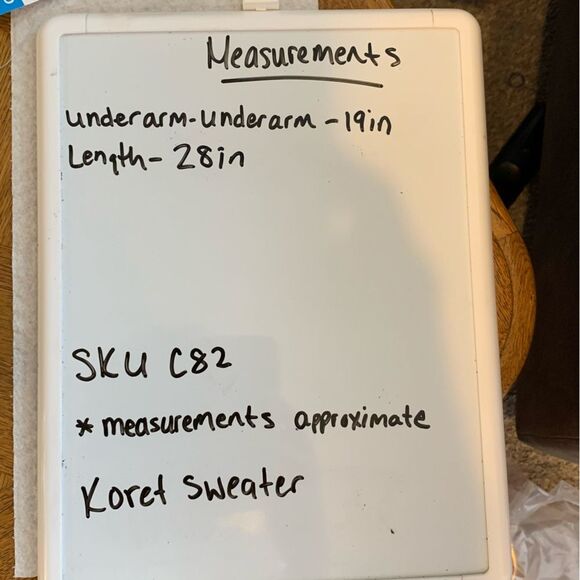 Measurements
underarm-underarm - 19in
Length - 28in
SKU C82
* measurements approximate
Koret Sweater